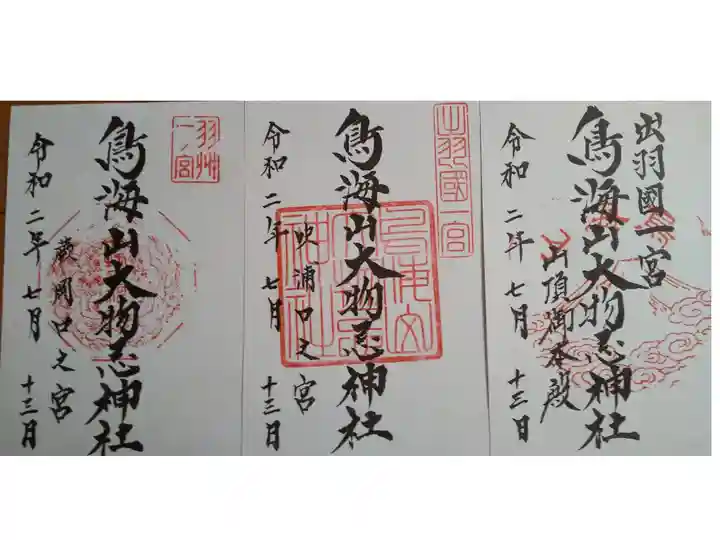 出羽國一宮
鳥海山大物忌神社
山頂御本殿
令和二年七月十三日
出羽國一宮
鳥海山大物忌神社
吹浦口之宮
令和二年七月十三日
羽州一ノ宮
鳥海山大物忌神社
蕨岡口之宮
令和二年七月十三日